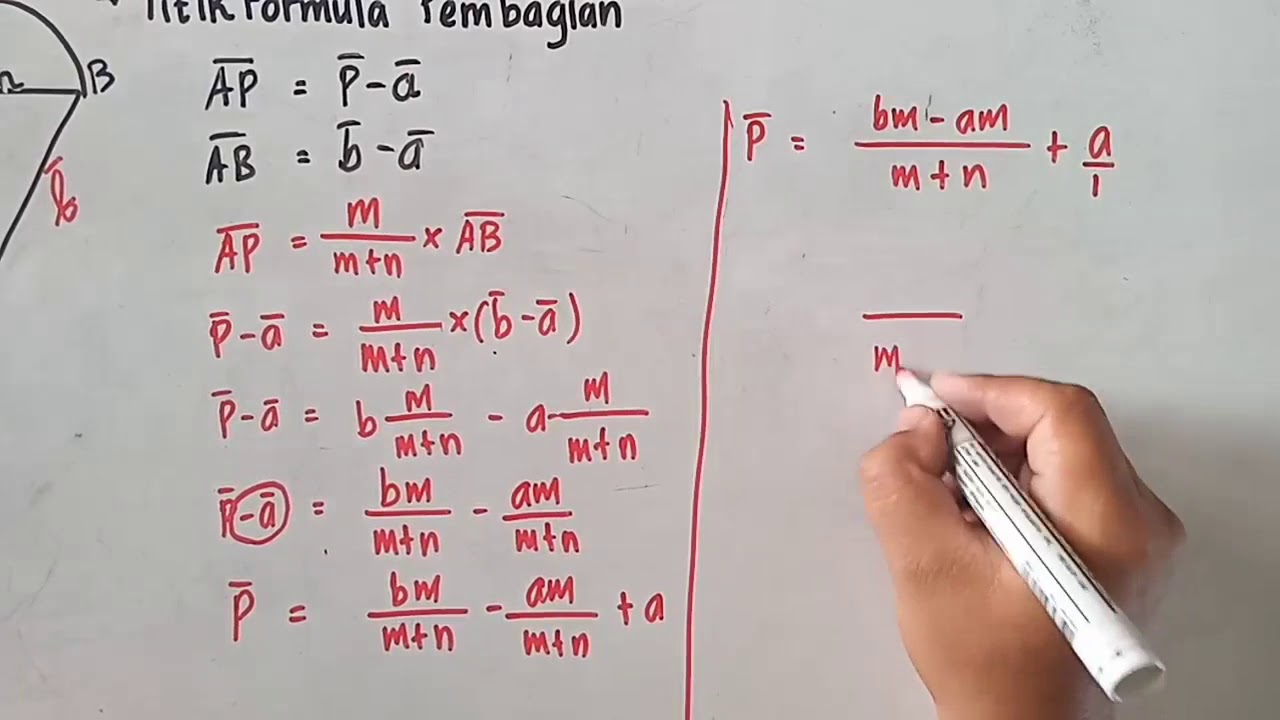 Titik Formula Pembagian
n
B
b̅
A̅P̅ = P̅ - a̅
A̅B̅ = b̅ - a̅
A̅P̅ = m/(m+n) × A̅B̅
P̅ - a̅ = m/(m+n) × (b̅ - a̅)
P̅ - a̅ = b m/(m+n) - a m/(m+n)
P̅ - a̅ = bm/(m+n) - am/(m+n)
P̅ = bm/(m+n) - am/(m+n) + a
P̅ = (bm - am)/(m+n) + a/1
m